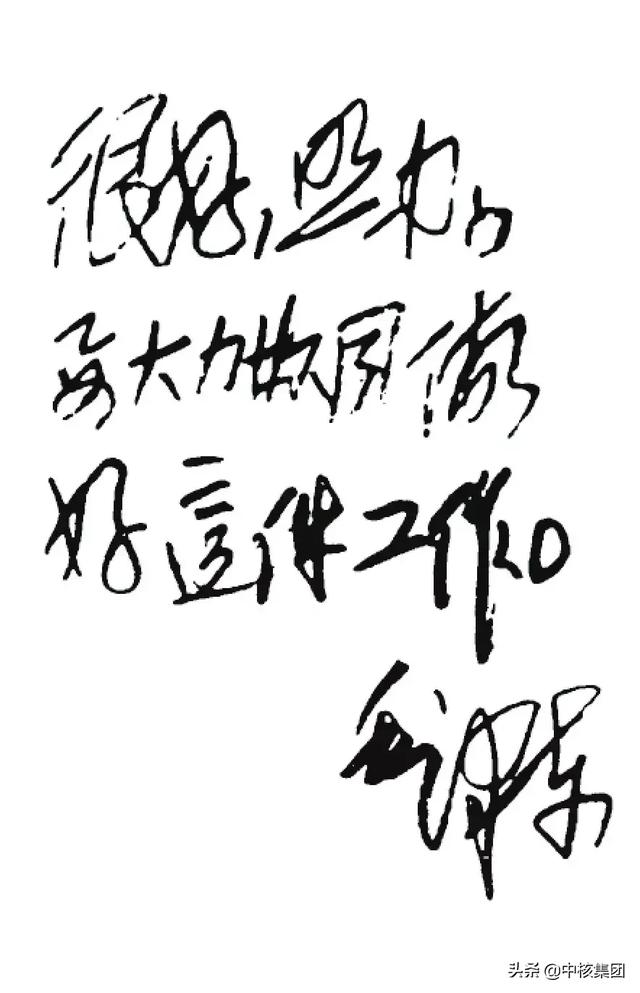 很好,照办。
要大力协同做
好這件工作。
毛泽东
头条 @中核集团